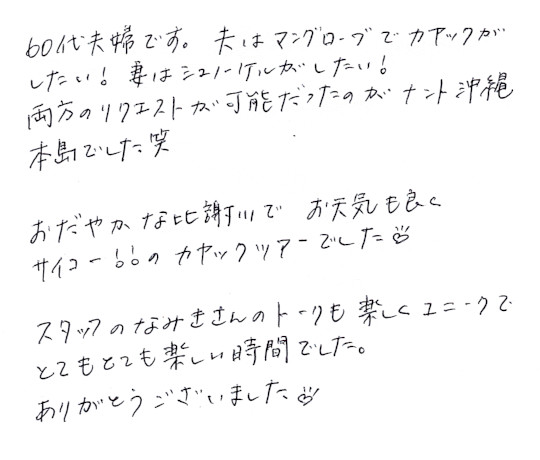 60代夫婦です。夫はマングローブでカヤックが
したい！妻はシュノーケルがしたい！
両方のリクエストが可能だったのがナント沖縄
本島でした笑
おだやかな比謝川で お天気も良く
サイコー!!のカヤックツアーでした
スタッフのなみきさんのトークも楽しくユニークで
とてもとても楽しい時間でした。
ありがとうございました